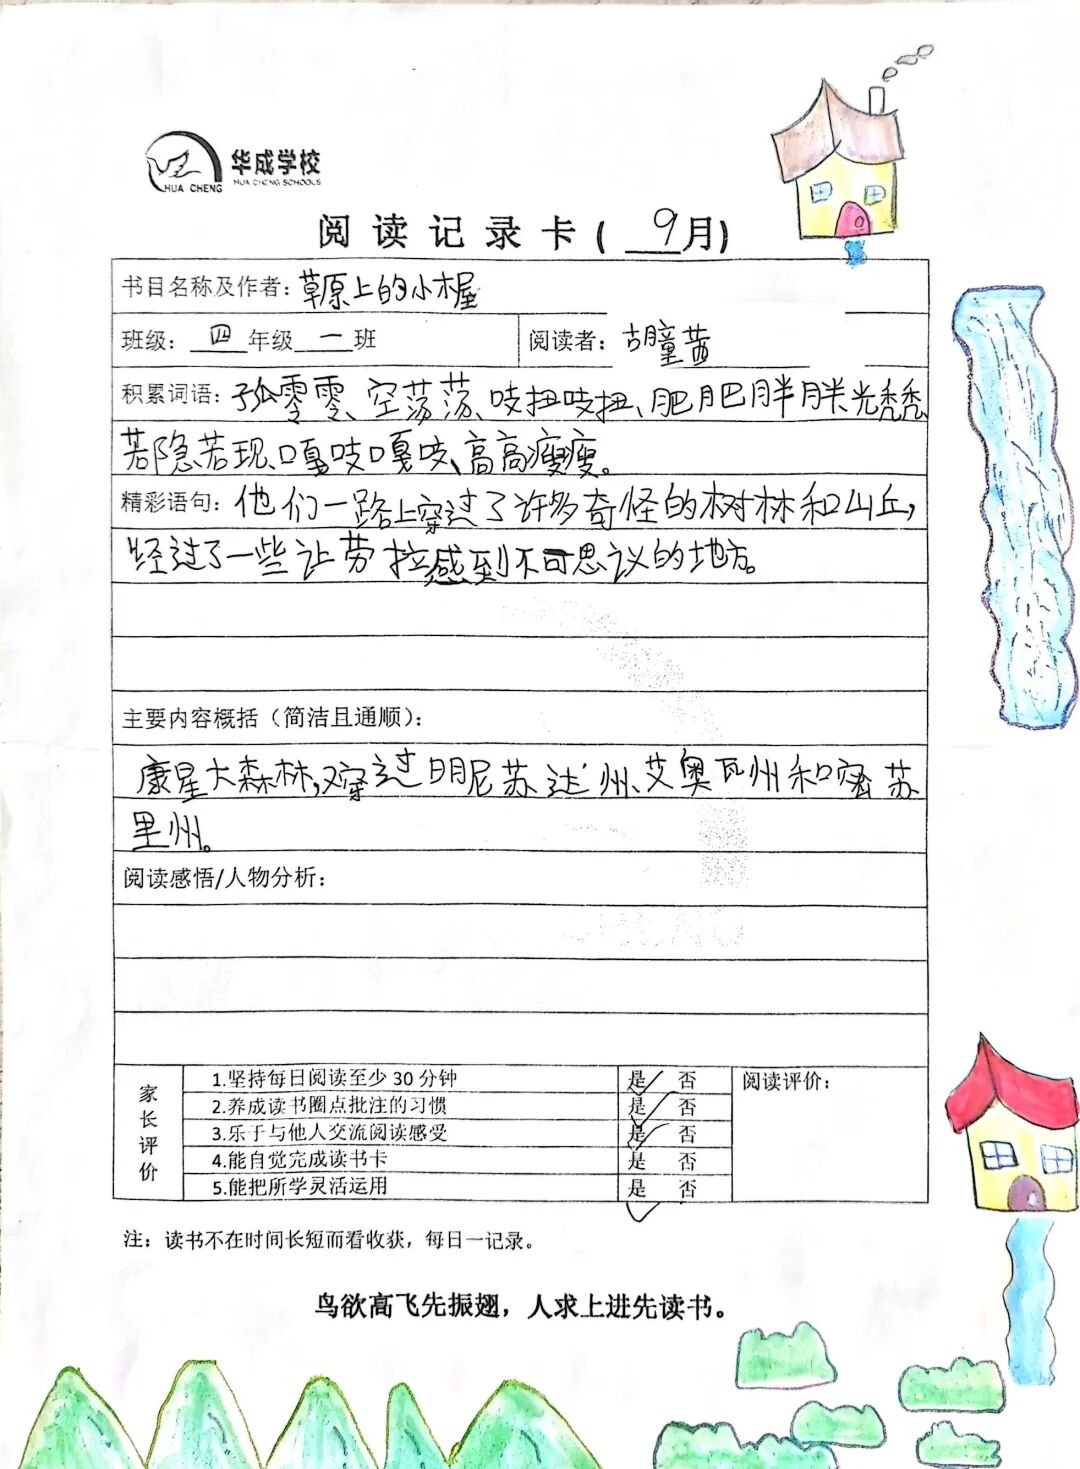 华成学校
HUA CHENG HUA CHENG SCHOOLS
阅读记录卡(9月)
书目名称及作者：草原上的小木屋
班级：四年级一班 阅读者：胡童茜
积累词语：孤零零、空荡荡、吱扭吱扭、肥肥胖胖光秃秃
若隐若现、嘎吱嘎吱、高高瘦瘦。
精彩语句：他们一路上穿过了许多奇怪的树林和山丘，
经过了一些让劳拉感到不可思议的地方。
主要内容概括（简洁且通顺）：
康星大森林，又穿过明尼苏达州、艾奥瓦州和密苏
里州。
阅读感悟/人物分析：
家长评价
1.坚持每日阅读至少30分钟 是✓ 否 阅读评价：
2.养成读书圈点批注的习惯 是✓ 否
3.乐于与他人交流阅读感受 是✓ 否
4.能自觉完成读书卡 是 否
5.能把所学灵活运用 是 否
✓
注：读书不在时间长短而看收获，每日一记录。
鸟欲高飞先振翅，人求上进先读书。